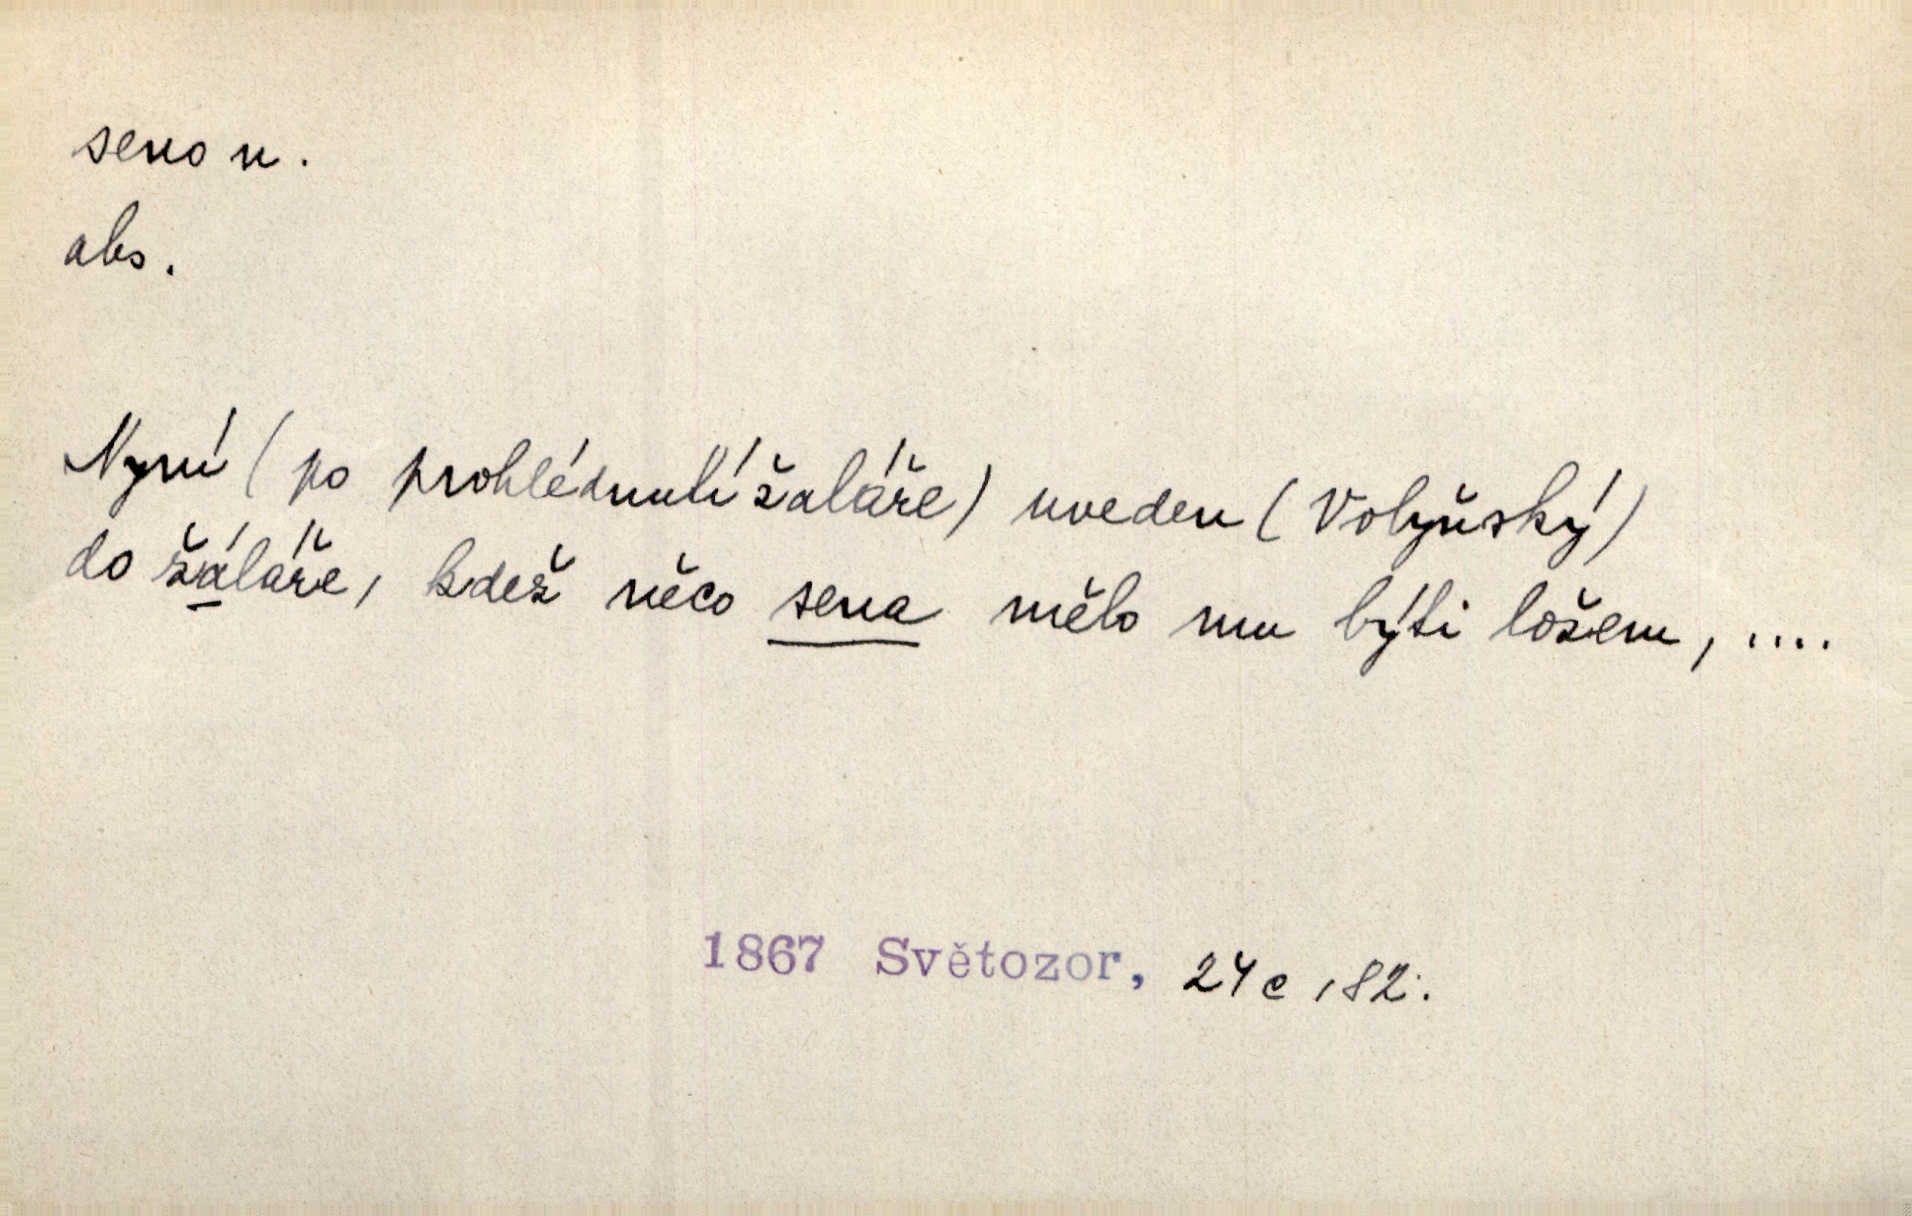 seno n.
abs.
Nyní (po prohlédnutí žaláře) uveden (Volyňský)
do žáláře, kdež něco sena mělo mu býti ložem, ....
1867 Světozor, 24c, 82.